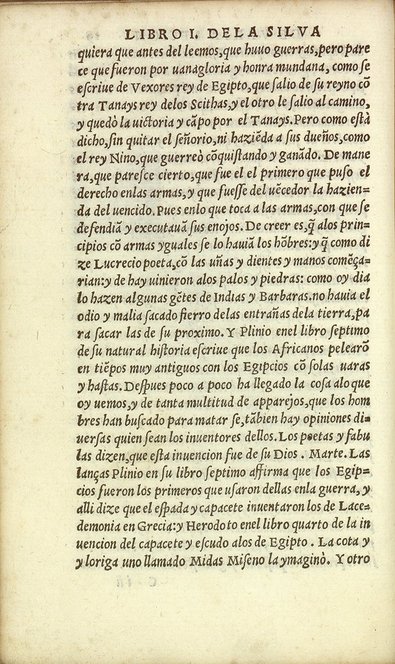 LIBRO I. DELA SILVA
quiera que antes del leemos, que huuo guerras, pero pare
ce que fueron por uanagloria y honra mundana, como se
escriue de Vexores rey de Egipto, que salio de su reyno cõ
tra Tanays rey delos Scithas, y el otro le salio al camino,
y quedò la uictoria y cãpo por el Tanays. Pero como està
dicho, sin quitar el señorio, ni haziẽda a sus dueños, como
el rey Nino, que guerreò cõquistando y ganãdo. De mane
ra, que paresce cierto, que fue el el primero que puso el
derecho enlas armas, y que fuesse del uẽcedor la hazien=
da del uencido. Pues enlo que toca a las armas, con que se
defendiã y executauã sus enojos. De creer es, q̃ alos prin=
cipios cõ armas yguales se lo hauiã los hõbres: y q̃ como di
ze Lucrecio poeta, cõ las uñas y dientes y manos comẽça=
rian: y de hay uinieron alos palos y piedras: como oy dia
lo hazen algunas gẽtes de Indias y Barbaras. no hauia el
odio y malia sacado fierro de las entrañas dela tierra, pa
ra sacar las de su proximo. Y Plinio enel libro septimo
de su natural historia escriue que los Africanos pelearõ
en tiẽpos muy antiguos con los Egipcios cõ solas uaras
y hastas. Despues poco a poco ha llegado la cosa alo que
oy uemos, y de tanta multitud de apparejos, que los hom
bres han buscado para matar se, tãbien hay opiniones di=
uersas quien sean los inuentores dellos. Los poetas y fabu
las dizen, que esta inuencion fue de su Dios . Marte. Las
lanças Plinio en su libro septimo affirma que los Egip=
cios fueron los primeros que usaron dellas enla guerra, y
alli dize que el espada y capacete inuentaron los de Lace=
demonia en Grecia: y Herodoto enel libro quarto de la in
uencion del capacete y escudo alos de Egipto . La cota y
y loriga uno llamado Midas Miseno la ymaginò. Y otro